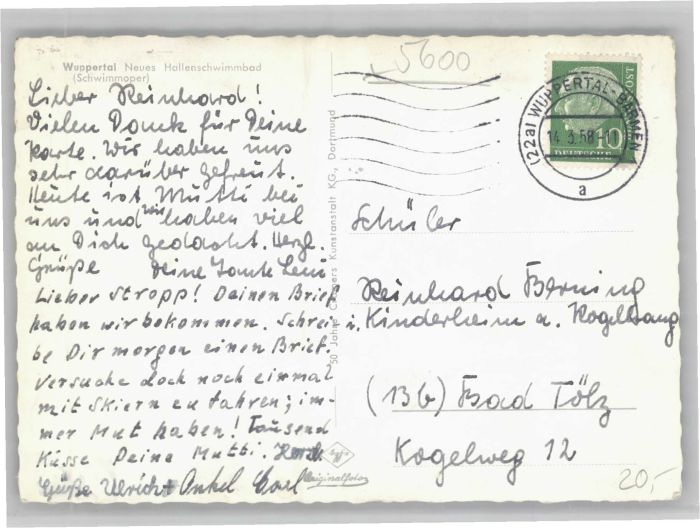 Wuppertal Neues Hallenschwimmbad
(Schwimmoper)
Lieber Reinhard!
Vielen Dank für Deine
Karte. Wir haben uns
sehr darüber gefreut.
Heute ist Mutti bei
uns und wir haben viel
an Dich gedacht. Herzl.
Grüße Deine Tante Leni
Lieber Stropp! Deinen Brief
haben wir bekommen. Schrei-
be Dir morgen einen Brief.
Versuche doch noch einmal
mit Skiern zu fahren; im-
mer Mut haben! Tausend
Küsse Deine Mutti.
Grüße Ulrich + Onkel Carl
50 Jahre Cramers Kunstanstalt KG, Dortmund
Originalfoto
5600
(22a) WUPPERTAL-BARMEN
14.3.58
a
10
DEUTSCHE
POST
Schüler
Reinhard Berning
i. Kinderheim a. Kogelhang
(13b) Bad Tölz
Kogelweg 12
20,-